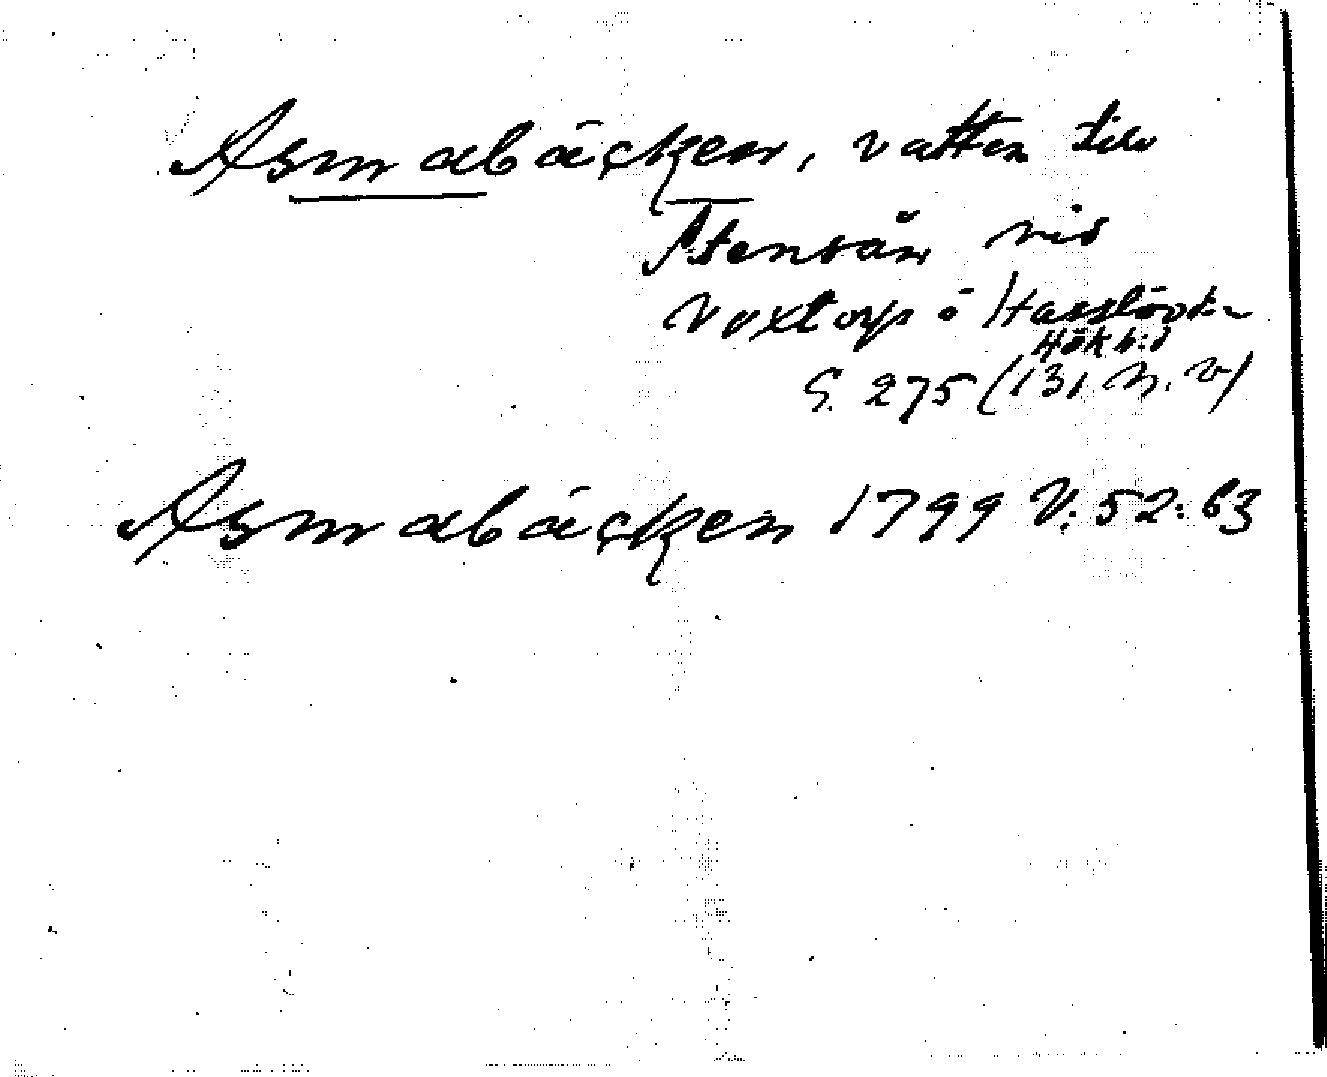 Asmabäcken, vatten till
Stensån vid
Voxtorp i Hasslövs
Hök h:d
S. 275 (131 n. v)
Asmabäcken 1799 V: 52: 63